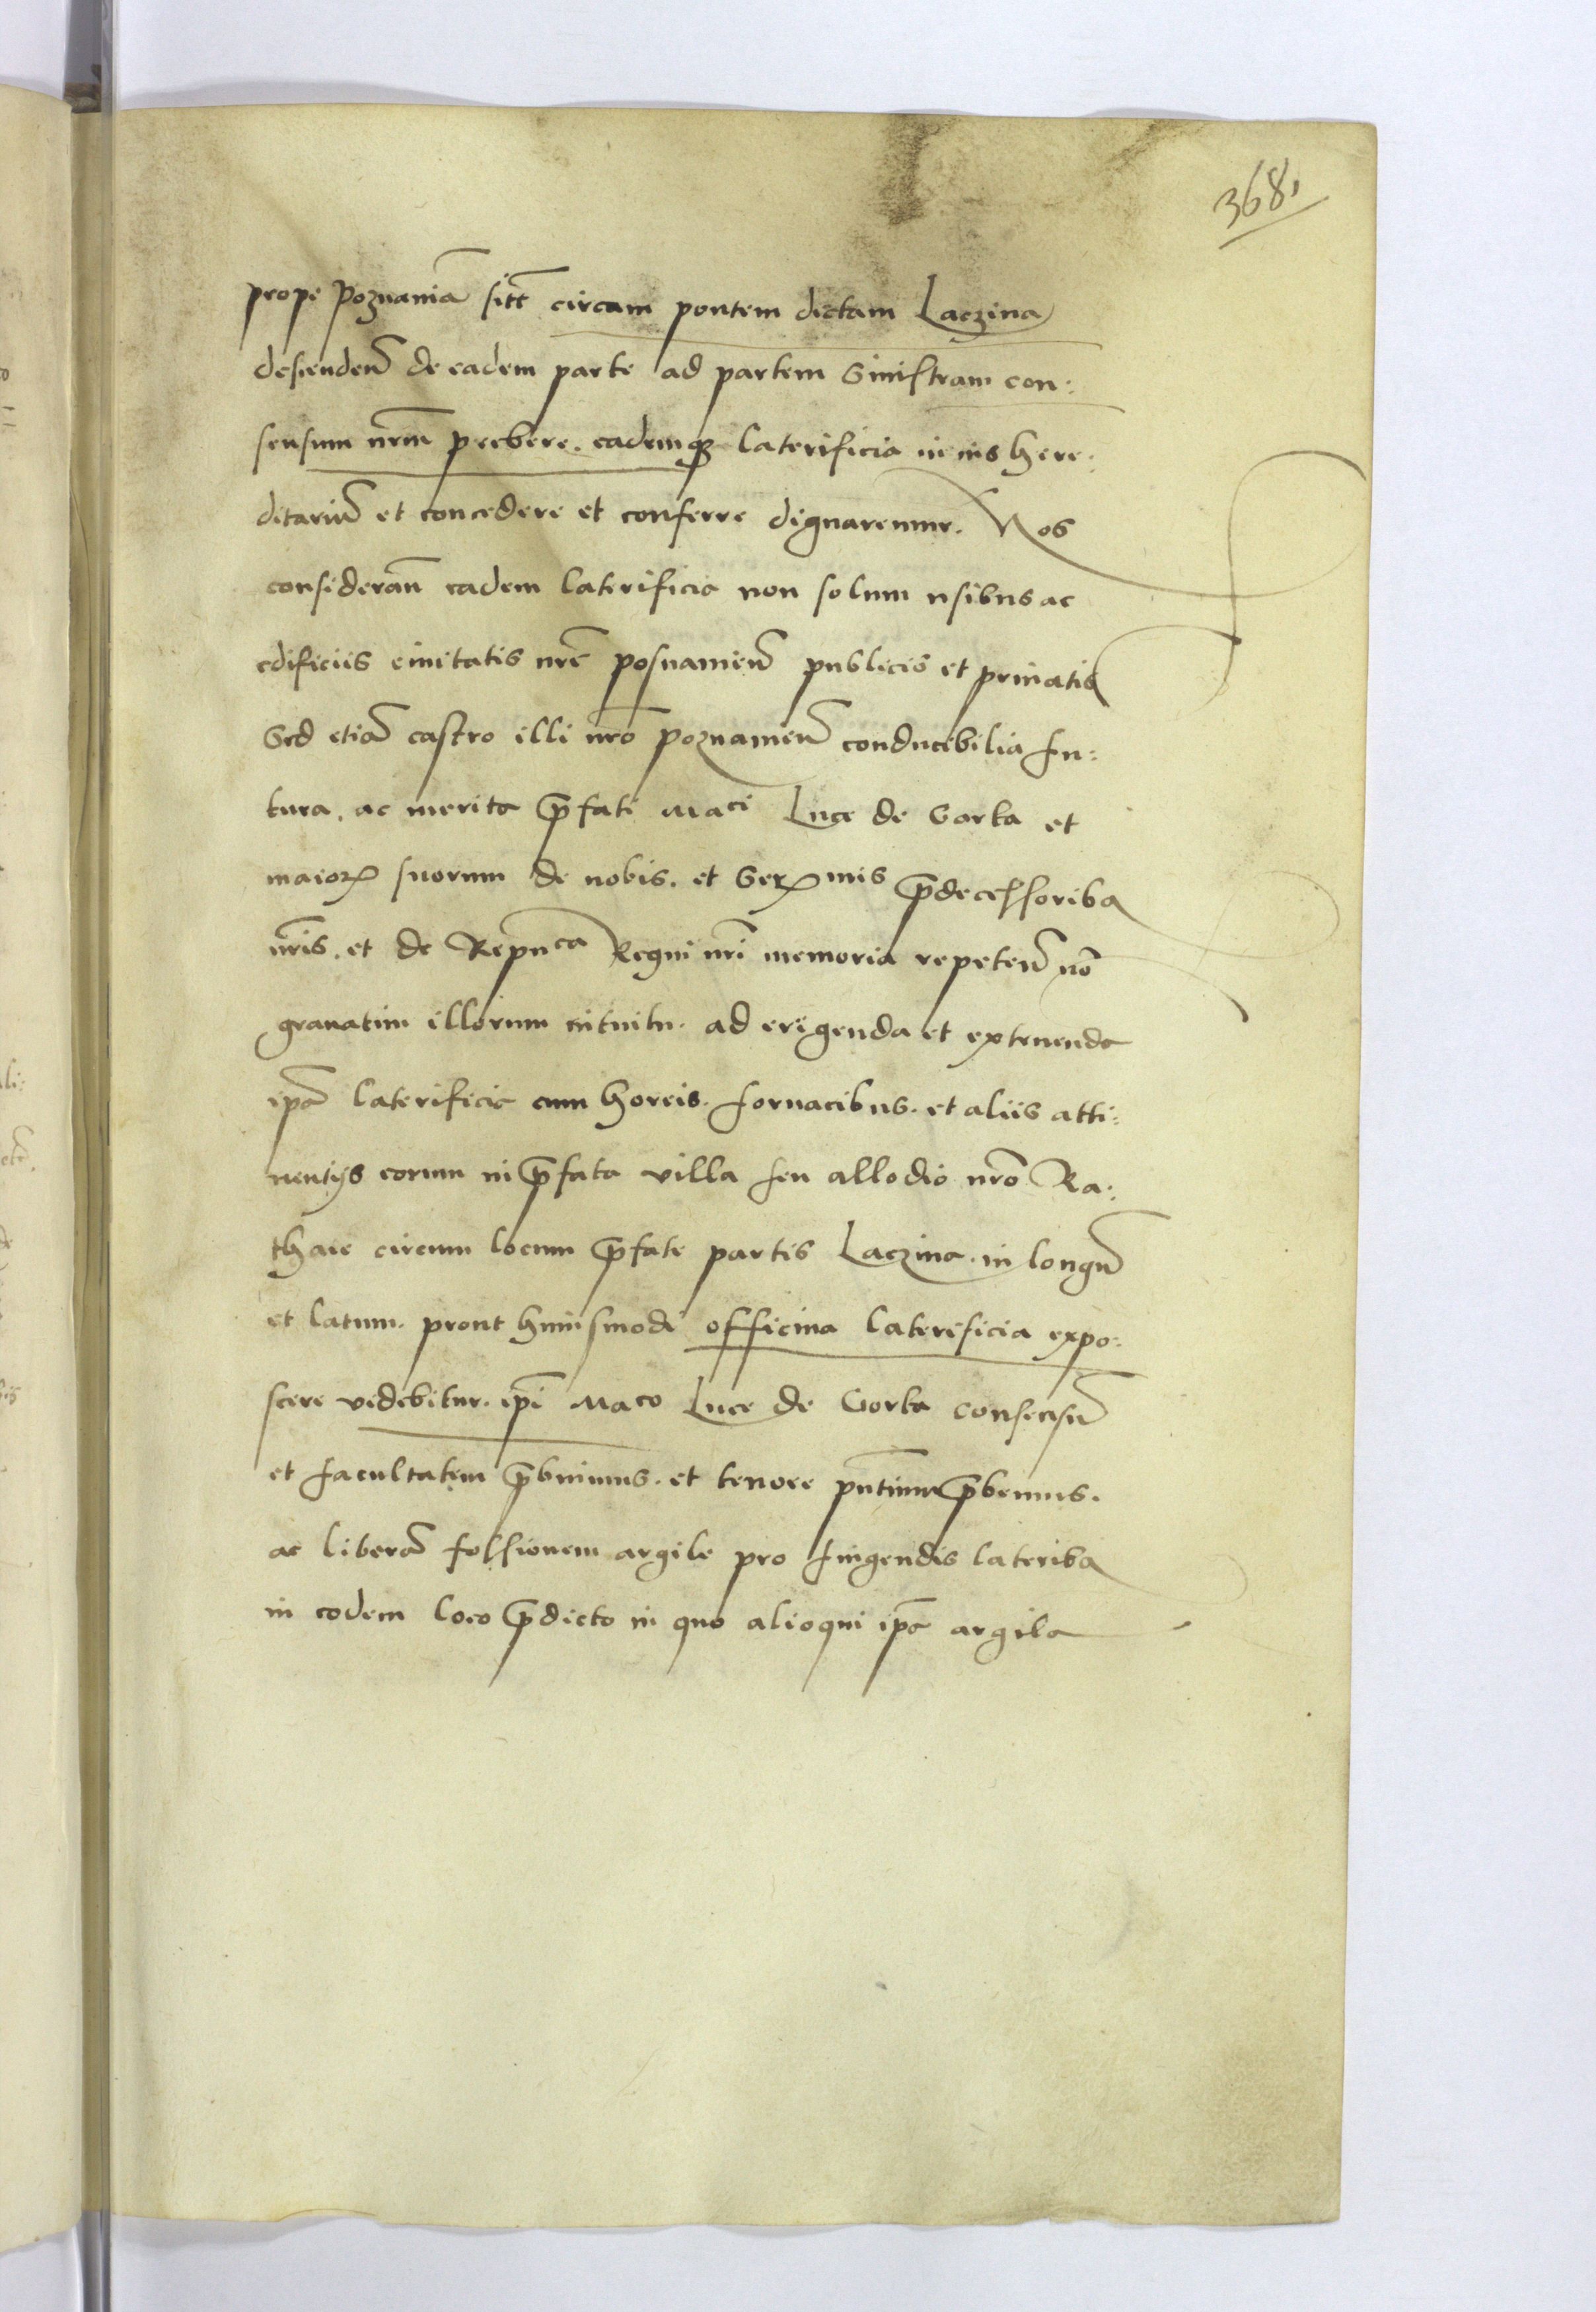 368
prope Poznaniã sitẽ circam pontem dictam Laczina
descendeñ de eadem parte ad partem Sinistram con:
sensum nr̃m preebere. eademq3 laterificia in ius here:
ditariũ et concedere et conferre dignaremur. Nos
considerañ eadem laterificia non solum usibus ac
edificiis civitatis nr̃e posnanieñ publicis et privatis
Sed etiã castro illi nr̃o poznanieñ conducibilia fu:
tura. ac merita p̃fati Maci Luce de Gorka et
maiorꝝ suorum de nobis. et Serꝝmis p̃decessoribꝰ
nr̃is. et de Repuca Regni nr̃i memoria repeteñ nõ
gravatim illorum intuitu. ad erigenda et extruenda
ip̃a laterificia cum horeis. fornacibus. et aliis atti:
nentijs eorum in p̃fata villa seu allodio nr̃o Ra:
thaie circum locum p̃fate partis Laczina. in longũ
et latum. prout huiusmodi officina laterificia expo:
scere videbitur. ip̃i Maco Luce de Gorka consensũ
et facultatem p̃buimus. et tenore pn̄tium p̃bemus.
ac liberã fossionem argile pro fingendis lateribꝰ
in eodem loco p̃dicto in quo alioqui ip̃a argila